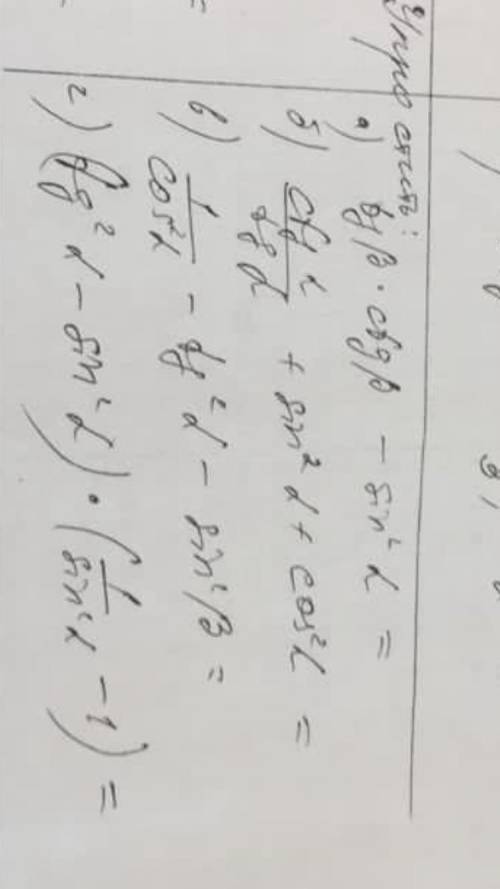 Упростить:
а) tg β · ctg β − sin² α =
б) ctg α / tg α + sin² α + cos² α =
в) 1 / cos² α − tg² α − sin² β =
г) (tg² α − sin² α) · (1 / sin² α − 1) =